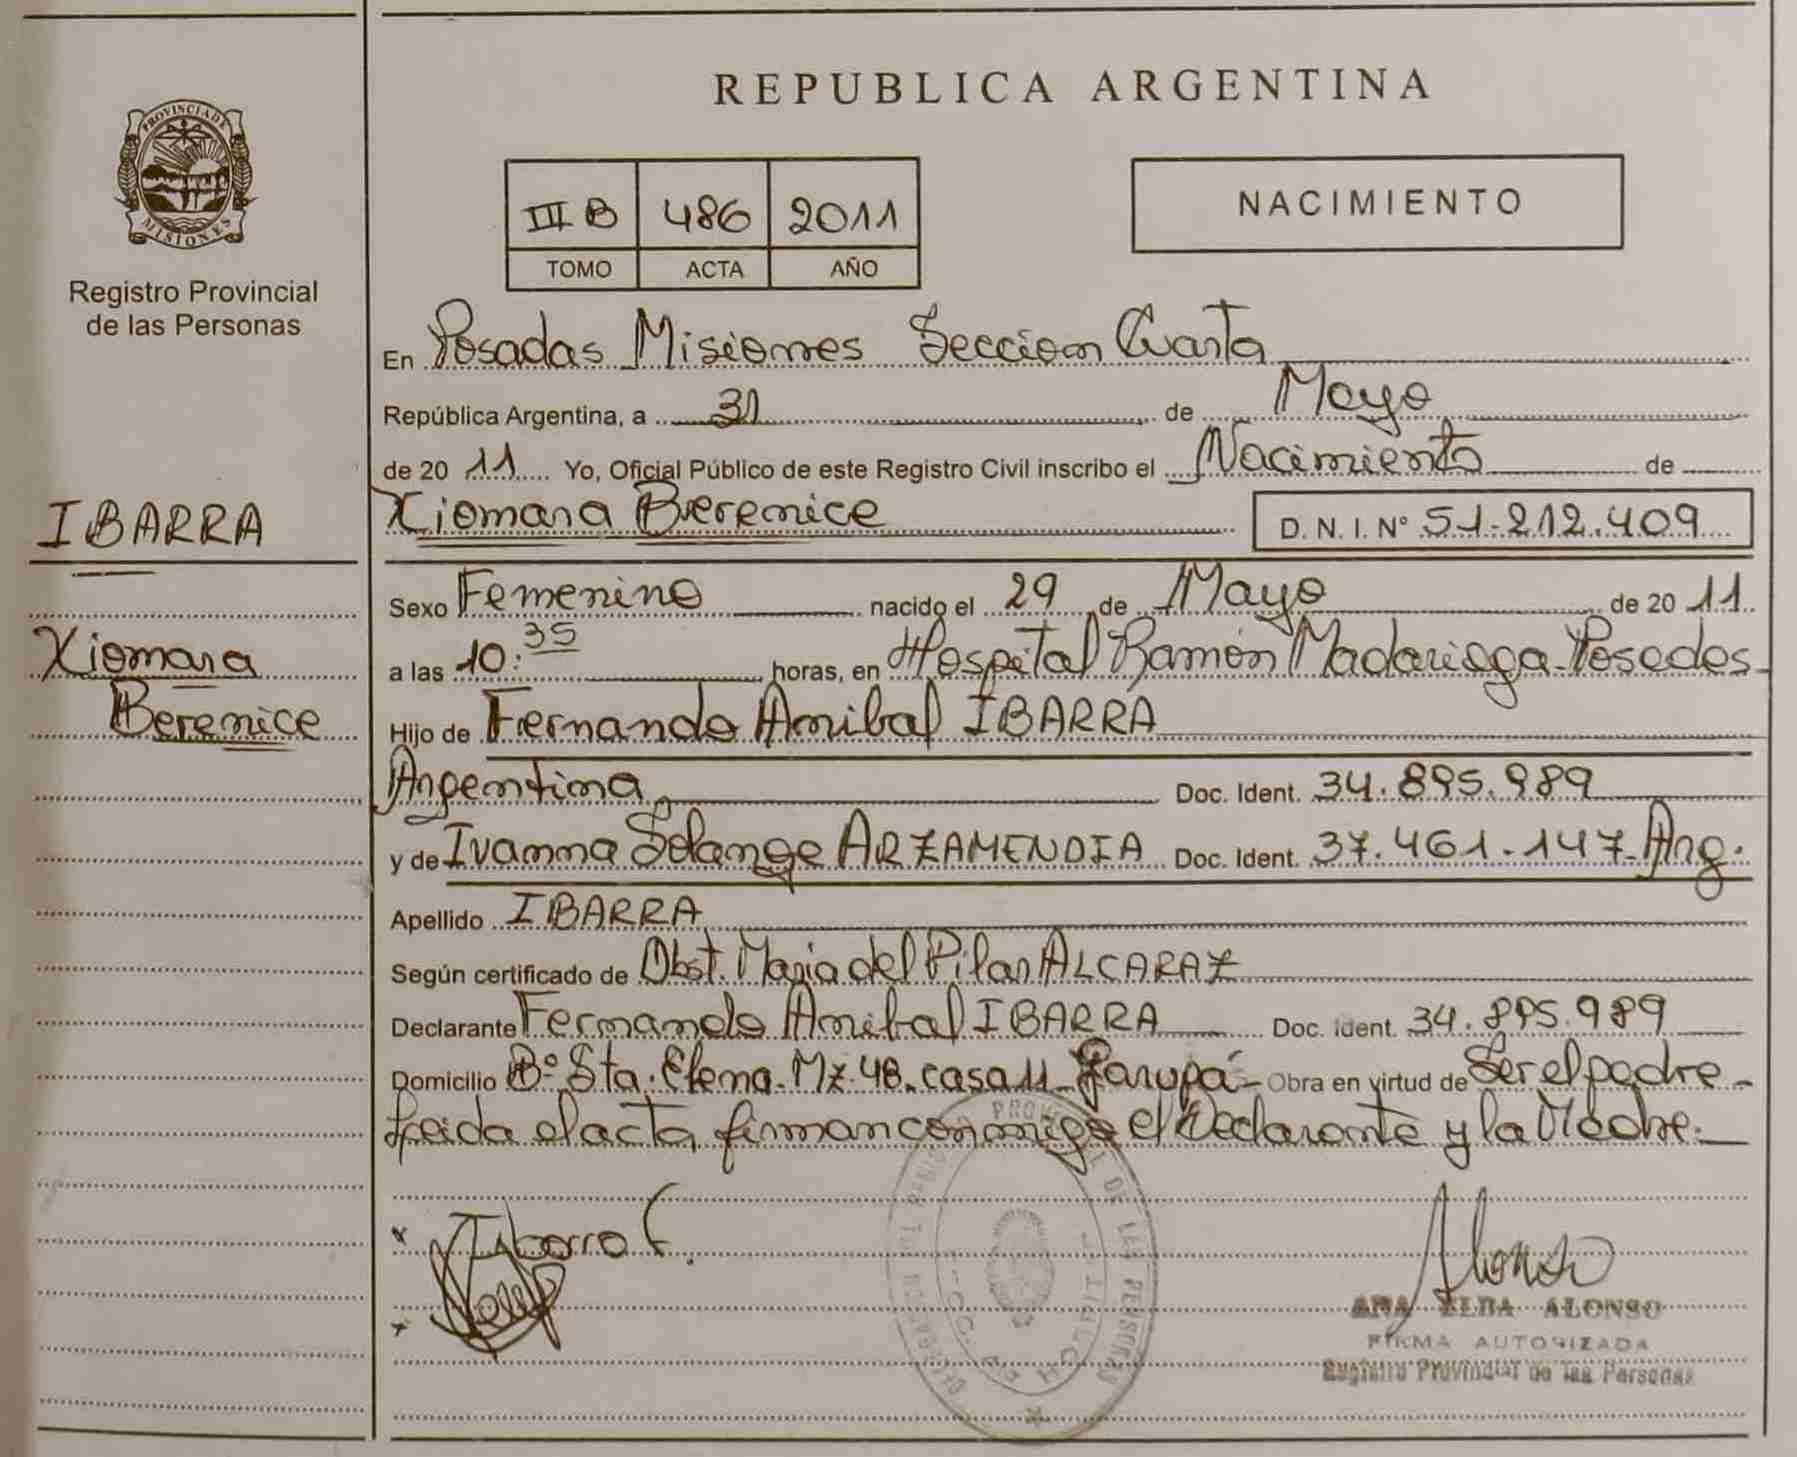 REPUBLICA ARGENTINA
PROVINCIA DE
MISIONES
Registro Provincial
de las Personas
III B 486 2011
TOMO ACTA AÑO
NACIMIENTO
En Posadas Misiones Seccion Cuarta
República Argentina, a 31 de Mayo
de 2011 Yo, Oficial Público de este Registro Civil inscribo el Nacimiento de
IBARRA
Xiomara Berenice D. N. I. N° 51.212.409
Sexo Femenino nacido el 29 de Mayo de 2011
Xiomara
Berenice
a las 10:35 horas, en Hospital Ramón Madariaga-Posadas-
Hijo de Fernando Anibal IBARRA
Argentina Doc. Ident. 34.895.989
y de Ivanna Solange ARZAMENDIA Doc. Ident. 37.461.147-Arg.
Apellido IBARRA
Según certificado de Obst. Maria del Pilar ALCARAZ
Declarante Fernando Anibal IBARRA Doc. Ident. 34.895.989
Domicilio B° Sta. Elena. Mz. 48. casa 11 - Garupá - Obra en virtud de Ser el padre -
Leida el acta, firman conmigo el Declarante y la Madre.-
x Ibarra F.
x
Alonso
ANA ELBA ALONSO
FIRMA AUTORIZADA
Registro Provincial de las Personas